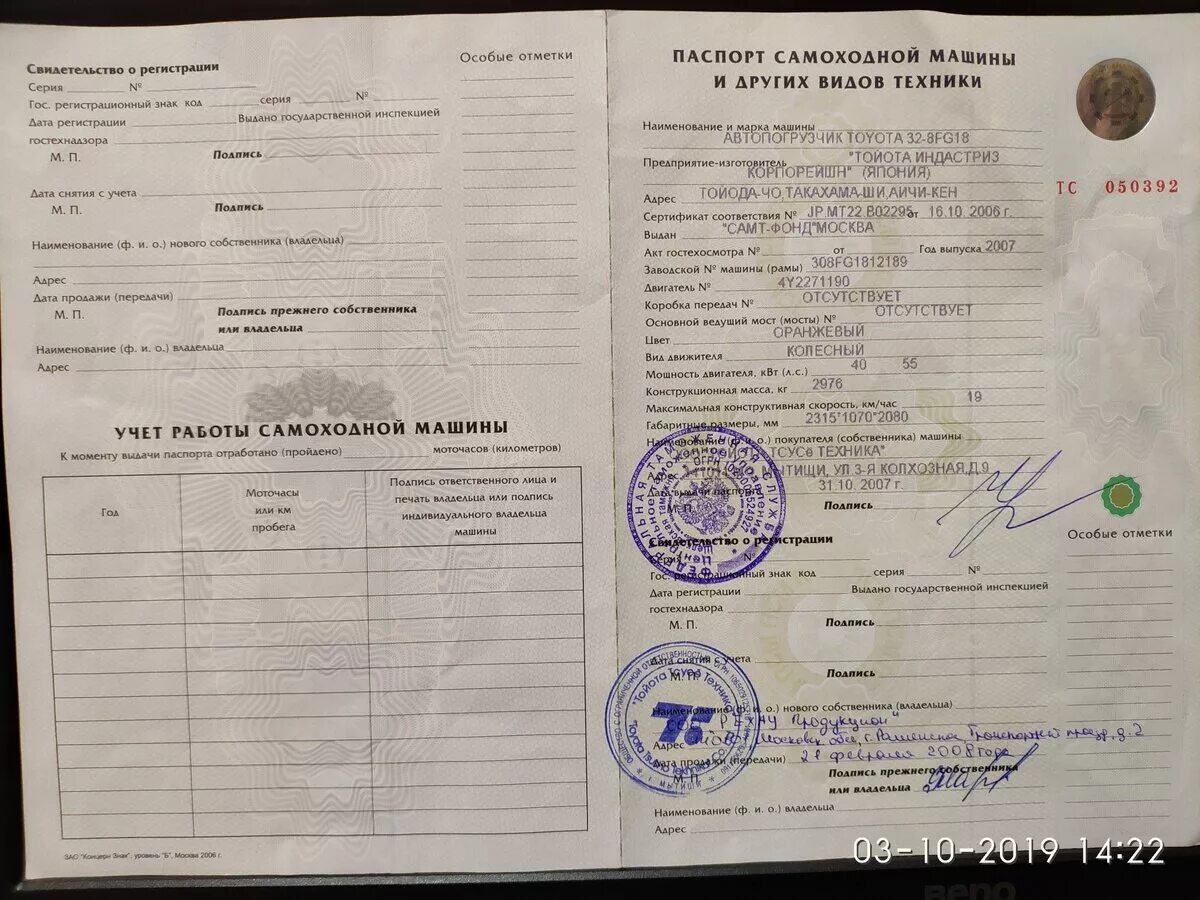 Свидетельство о регистрации
Особые отметки
Серия № 
Гос. регистрационный знак код серия №
Дата регистрации Выдано государственной инспекцией
гостехнадзора
М. П. Подпись
Дата снятия с учета
М. П. Подпись
Наименование (ф. и. о.) нового собственника (владельца)
Адрес
Дата продажи (передачи)
М. П. Подпись прежнего собственника
или владельца
Наименование (ф. и. о.) владельца
Адрес
УЧЕТ РАБОТЫ САМОХОДНОЙ МАШИНЫ
К моменту выдачи паспорта отработано (пройдено) моточасов (километров)
Год
Моточасы
или км
пробега
Подпись ответственного лица и
печать владельца или подпись
индивидуального владельца
машины
ЗАО "Концерн Знак", уровень "Б", Москва 2006 г.
ПАСПОРТ САМОХОДНОЙ МАШИНЫ
И ДРУГИХ ВИДОВ ТЕХНИКИ
ТС 050392
Наименование и марка машины
АВТОПОГРУЗЧИК TOYOTA 32-8FG18
Предприятие-изготовитель "ТОЙОТА ИНДАСТРИЗ
КОРПОРЕЙШН" (ЯПОНИЯ)
Адрес ТОЙОДА-ЧО,ТАКАХАМА-ШИ,АИЧИ-КЕН
Сертификат соответствия № JP.MT22.B02295 от 16.10. 2006 г.
Выдан "САМТ-ФОНД"МОСКВА
Акт гостехосмотра № от Год выпуска 2007
Заводской № машины (рамы) 308FG1812189
Двигатель № 4Y2271190
Коробка передач № ОТСУТСТВУЕТ
Основной ведущий мост (мосты) № ОТСУТСТВУЕТ
Цвет ОРАНЖЕВЫЙ
Вид движителя КОЛЕСНЫЙ
Мощность двигателя, кВт (л.с.) 40 55
Конструкционная масса, кг 2976
Максимальная конструктивная скорость, км/час 19
Габаритные размеры, мм 2315*1070*2080
Наименование (ф. и. о.) покупателя (собственника) машины
ТСУСё ТЕХНИКА"
МЫТИЩИ, УЛ 3-Я КОЛХОЗНАЯ,Д.9
Дата выдачи паспорта 31.10. 2007 г.
М. П. Подпись
Свидетельство о регистрации
Особые отметки
Серия №
Гос. регистрационный знак код серия №
Дата регистрации Выдано государственной инспекцией
гостехнадзора
М. П. Подпись
Дата снятия с учета
М. П. Подпись
"Тойота Тсусё Техника"
Toyota Tsusho Tekhnika Co.
г. МЫТИЩИ
Наименование (ф. и. о.) нового собственника (владельца)
Продукцион"
Адрес Московск. обл., г. Раменское, Транспортный проезд, д. 2
Дата продажи (передачи) 21 февраля 2008 года
М. П. Подпись прежнего собственника
или владельца
Наименование (ф. и. о.) владельца
Адрес
03-10-2019 14:22